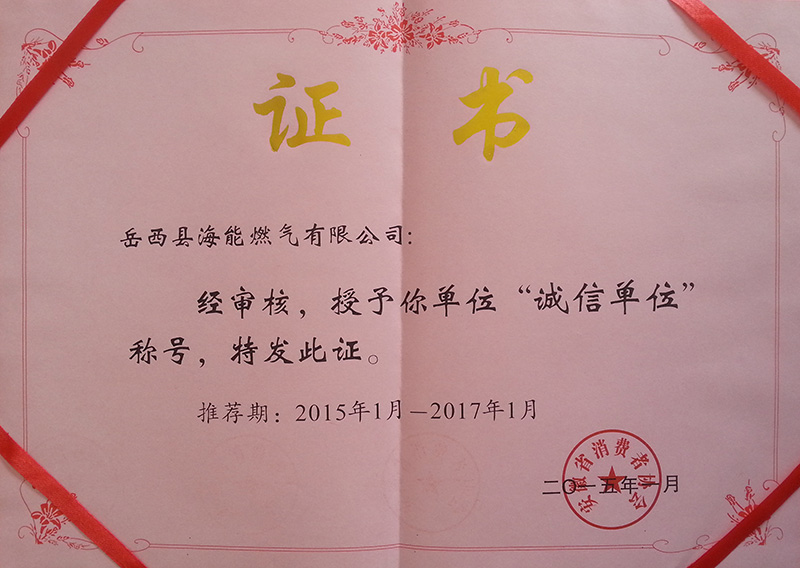 证书
岳西县海能燃气有限公司：
经审核，授予你单位“诚信单位”
称号，特发此证。
推荐期：2015年1月—2017年1月
安徽省消费者协会
二〇一五年一月